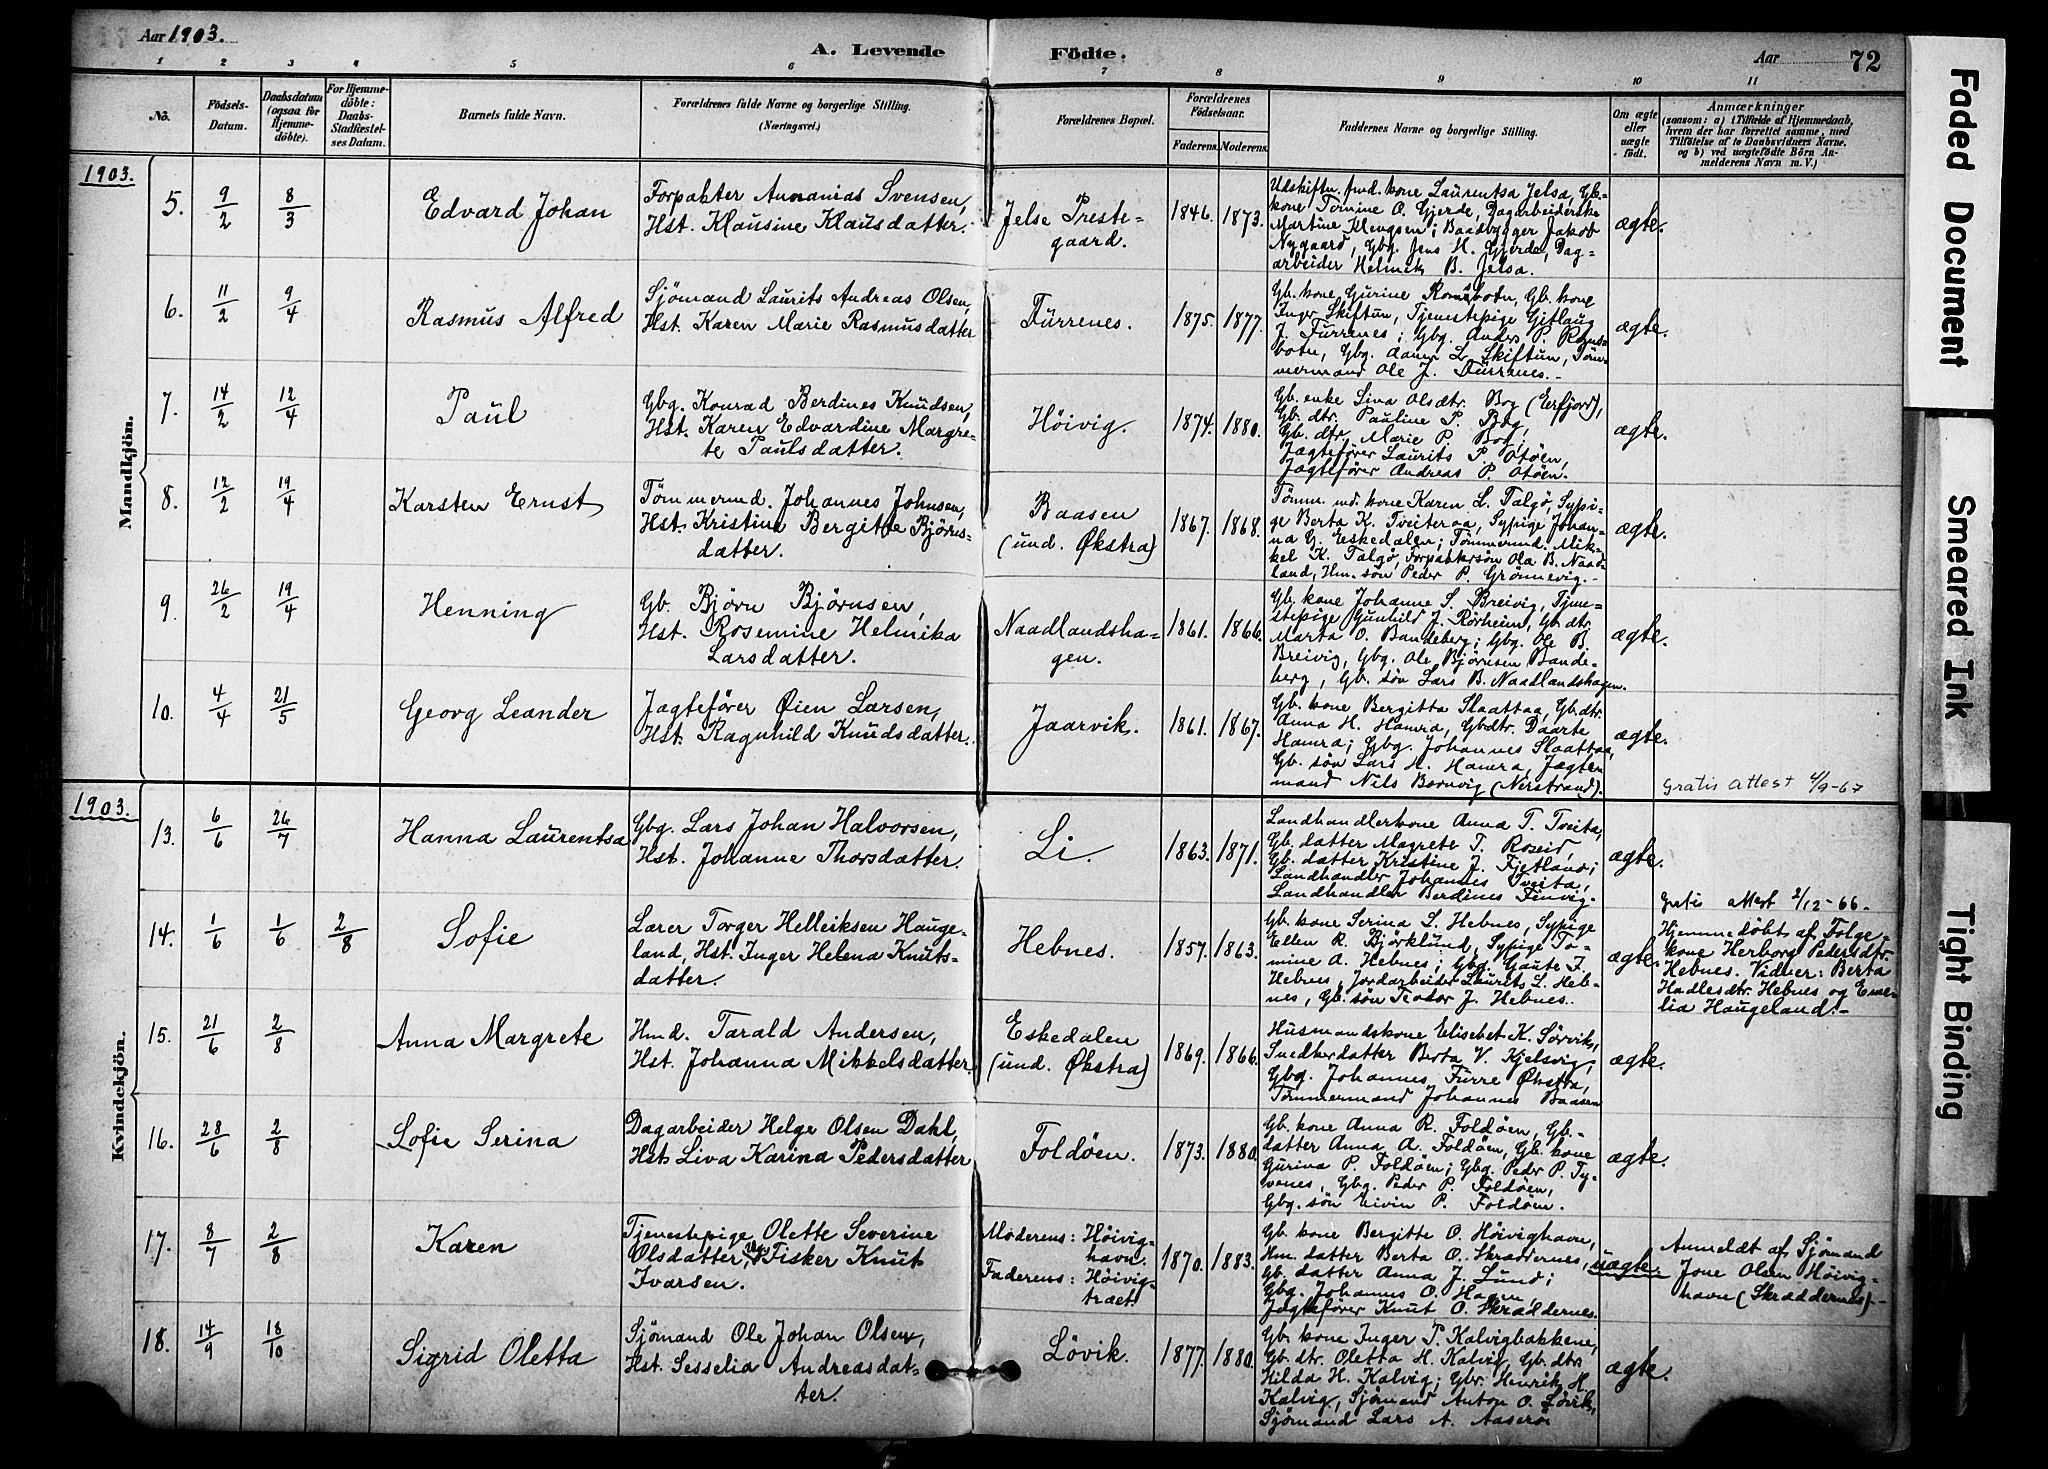 Aar 1903.
A. Levende Födte.
Aar 72
1 2 3 4 5 6 7 8 9 10 11
No.
Födsels-Datum.
Daabsdatum (ogsaa for Hjemmedöbte).
For Hjemmedöbte: Daabs-Stadfæstelses Datum.
Barnets fulde Navn.
Forældrenes fulde Navne og borgerlige Stilling.
(Næringsvei.)
Forældrenes Bopæl.
Forældrenes Födselsaar.
Faderens. Moderens.
Faddernes Navne og borgerlige Stilling.
Om ægte eller uægte födt.
Anmærkninger
(saasom: a) i Tilfælde af Hjemmedaab,
hvem der har forrettet samme, med
Tilföielse af to Daabsvidners Navne.
og b) ved uægtefödte Börn An-
melderens Navn m. V.)
Mandkjön.
1903.
5. 9/2 8/3 Edvard Johan
Forpakter Annanias Svensen,
Hst. Klausine Klausdatter.
Jelse Preste-
gaard.
1846. 1873.
Udskiftn. fmd. kone Laurentsa Jelsa, Gb.
kone Tomine O. Gjerde, Dagarbeiderske
Martine Klengsen; Baadbygger Jakob
Nygaard, Gbg. Jens H. Gjerde, Dag-
arbeider Helmik B. Jelsa.
ægte.
6. 11/2 9/4 Rasmus Alfred
Sjömand Laurits Andreas Olsen,
Hst. Karen Marie Rasmusdatter
Fürrenes.
1875. 1877.
Gb. kone Gurine Romsbotn, Gb. kone
Inger Skiftun, Tjenestepige Gitlaug
J. Fürrenes; Gbg. Anders P. Roms-
botn, Gbg. L. Skiftun, Töm-
mermand Ole J. Fürrenes.
ægte.
7. 14/2 12/4 Paul
Gbg. Konrad Berdines Knudsen,
Hst. Karen Edvardine Margre-
te Paulsdatter.
Höivig.
1874. 1880.
Gb. enke Liva Olsdtr. Bog (Erfjord),
Gb. dtr. Pauline P. Bog,
Gb. dtr. Marie P. Bog,
Jægtefører Laurits P. Otöen,
Jægtefører Andreas P. Otöen.
ægte.
8. 12/2 19/4 Karsten Ernst
Tömmermd. Johannes Johnsen,
Hst. Kristine Bergitte Björns-
datter.
Baasen
(und. Økstra)
1867. 1868.
Tömm. md. kone Karen L. Talgö, Sypi-
ge Berta K. Tveiteraa, Sypige Johan-
na G. Eskedalen; Tömmermd. Mik-
kel K. Talgö, Forpaktersön Ola B. Naad-
land, Hm. sön Peder P. Grönnevig.
ægte.
9. 26/2 19/4 Henning
Gb. Björn Björnsen,
Hst. Rosemine Helmika
Larsdatter.
Naadlandsha-
gen.
1861. 1866.
Gb. kone Johanne S. Breivig, Tjene-
stepige Gunhild J. Rörheim, Gb. dtr.
Marta O. Bandeberg; Gbg. Ole B.
Breivig, Gbg. Ole Björnsen Bande-
berg, Gb. sön Lars B. Naadlandshagen.
ægte.
10. 4/4 21/5 Georg Leander
Jagtefører Öien Larsen,
Hst. Ragnhild Knudsdatter.
Jaarvik.
1861. 1867.
Gb. kone Bergitta Slaattaa, Gb. dtr.
Anna H. Hamra, Gb. dtr. Daarte
Hamra; Gbg. Johannes Slaattaa,
Gb. sön Lars H. Hamra, Jægte-
mand Nils Bornvig (Nerstrand).
ægte.
Gratis attest 4/9-67
Kvindekjön.
1903.
13. 6/6 26/7 Hanna Laurentsa
Gbg. Lars Johan Halvorsen,
Hst. Johanne Thorsdatter.
Li.
1863. 1871.
Landhandlerkone Anna T. Tveita,
Gb. datter Magrete T. Roseid,
Gb. datter Kristine J. Fjetland;
Landhandler Johannes Tveita,
Landhandler Berdines Finvig.
ægte.
14. 1/6 1/6 2/8 Sofie
Lærer Torger Helleiksen Hauge-
land, Hst. Inger Helena Knuts-
datter.
Hebnes.
1857. 1863.
Gb. kone Serina S. Hebnes, Sypige
Ellen R. Björklund, Sypige To-
mine A. Hebnes; Gbg. Gaute J.
Hebnes, Jordarbeider Laurits L. Heb-
nes, Gb. sön Teodor J. Hebnes.
ægte.
Gratis attest 2/12-66.
Hjemmedöbt af Folge-
kone Herborg Pedersdtr.
Hebnes. Vidner: Berta
Hadlesdtr. Hebnes og Eme-
lia Haugeland.
15. 21/6 2/8 Anna Margrete
Hmd. Tarald Andersen,
Hst. Johanna Mikkelsdatter.
Eskedalen
(und. Økstra)
1869. 1866.
Husmandskone Elisebet K. Sörvik,
Snedkerdatter Berta V. Kjelsvig,
Gbg. Johannes Fürre Økstra,
Tömmermand Johannes Baasen
ægte.
16. 28/6 2/8 Sofie Serina
Dagarbeider Helge Olsen Dahl,
Hst. Liva Karina Pedersdatter
Foldöen.
1873. 1880.
Gb. kone Anna R. Foldöen, Gb.-
datter Anna A. Foldöen, Gb. kone
Gurina P. Foldöen; Gbg. Peder P. Ty-
venes, Gbg. Peder P. Foldöen,
Gbg. sön Eivin P. Foldöen.
ægte.
17. 8/7 2/8 Karen
Tjenestepige Olette Severine
Olsdatter, Fisker Knut
Ivarsen.
Moderens: Höivig-
havn.
Faderens: Höivig-
træet.
1870. 1883.
Gb. kone Bergitte O. Höivighavn,
Hm. datter Berta O. Skræddernes,
Gb. datter Anna J. Lund;
Gbg. Johannes O. Hagen,
Jægtefører Knut O. Skræddernes.
uægte.
Anmeldt af Sjömand
Jone Olsen Höivig-
havn (Skræddernes)
18. 14/9 18/10 Sigrid Oletta
Sjömand Ole Johan Olsen,
Hst. Sesselia Andreasdat-
ter.
Lövik.
1877. 1880.
Gb. kone Inger T. Kalvigbakkene,
Gb. dtr. Oletta H. Kalvig, Gb. dtr.
Hilda H. Kalvig; Gbr. Henrik H.
Kalvig, Sjömand Anton O. Lövik,
Sjömand Lars A.
ægte.
Faded Document
Smeared Ink
Tight Binding